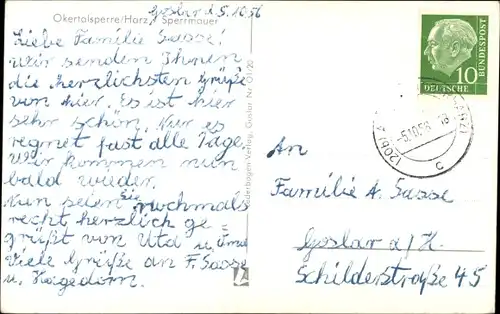 Goslar d. 5.10.56
Okertalsperre/Harz, Sperrmauer
Liebe Familie Sasse!
Wir senden Ihnen
die herzlichsten Grüße
von hier. Es ist hier
sehr schön. Nur es
regnet fast alle Tage.
Wir kommen nun
bald wieder.
Nun seien Sie nochmals
recht herzlich ge
grüßt von Uta u.
Viele Grüße an F. Sasse
u. Hagedorn.
10
DEUTSCHE
BUNDESPOST
(20b)
-5.10.56
c
An
Familie A. Sasse
Goslar a/H.
Schilderstraße 45